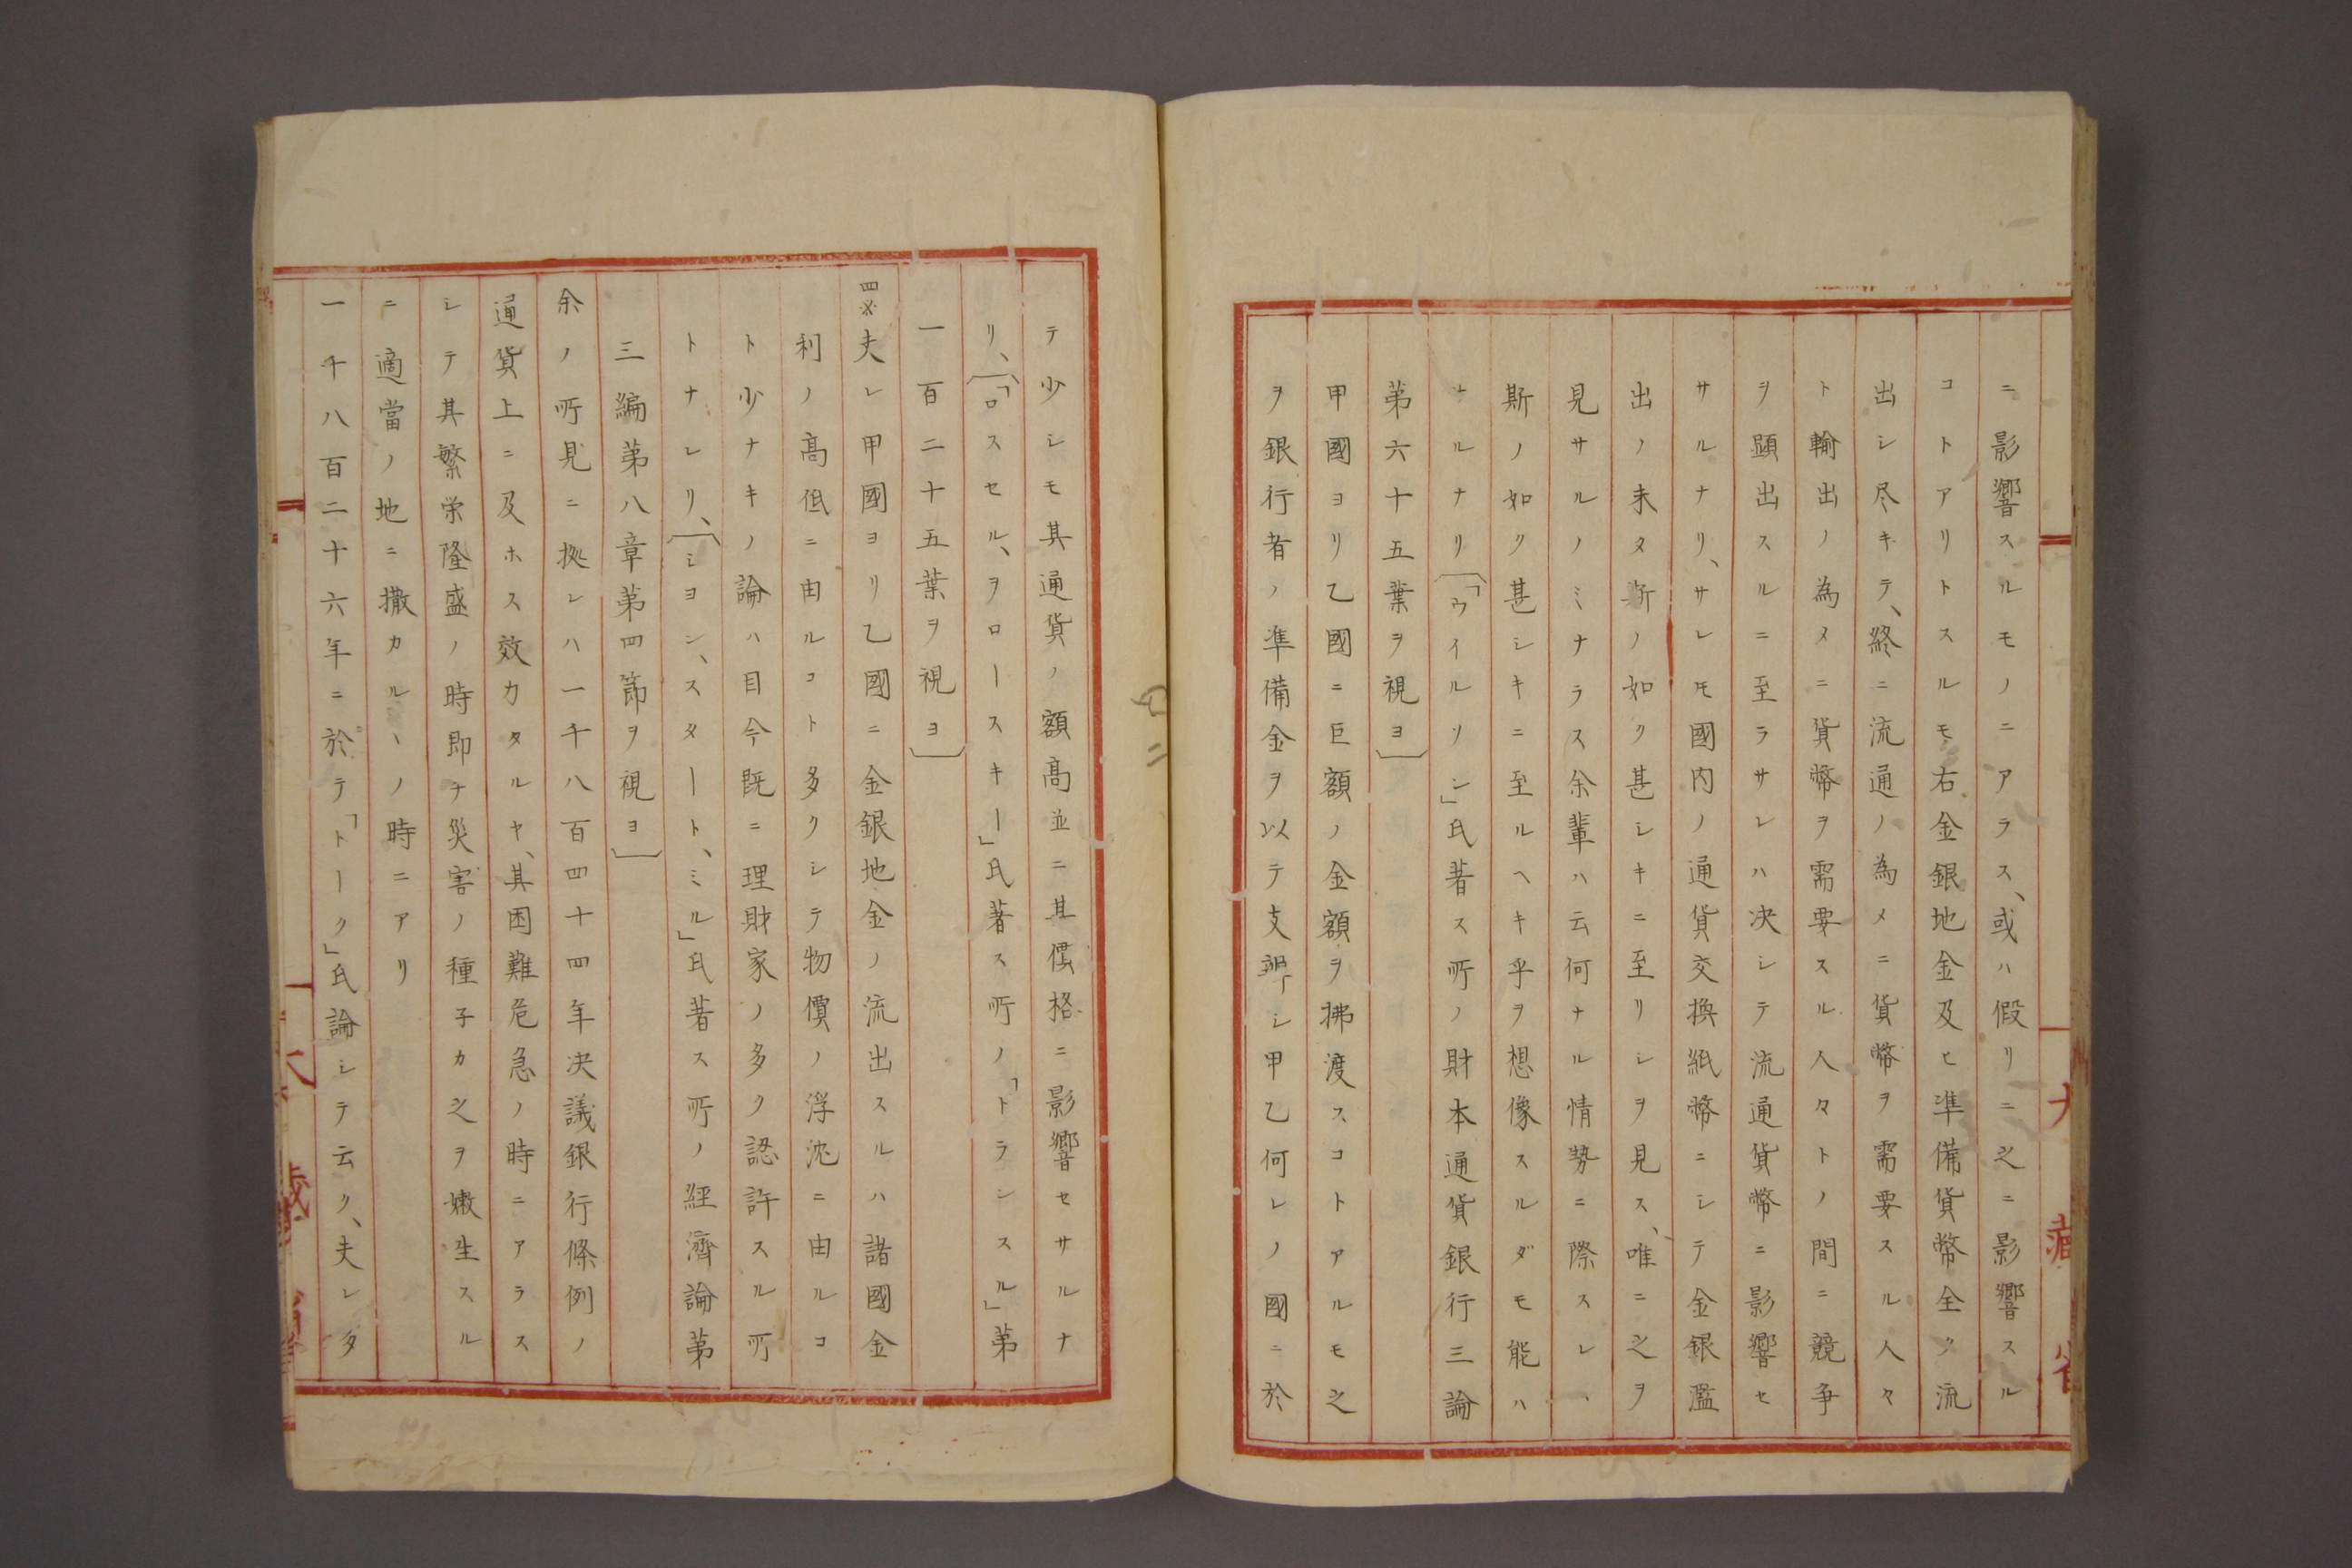 ニ影響スルモノニアラス、或ハ假リニ之ニ影響スル
コトアリトスルモ右金銀地金及ヒ準備貨幣全ク流
出シ尽キテ、終ニ流通ノ為メニ貨幣ヲ需要スル人々
ト輸出ノ為メニ貨幣ヲ需要スル人々トノ間ニ競争
ヲ顕出スルニ至ラサレハ决シテ流通貨幣ニ影響セ
サルナリ、サレモ國内ノ通貨交換紙幣ニシテ金銀濫
出ノ未タ斯ノ如ク甚シキニ至リシヲ見ス、唯ニ之ヲ
見サルノミナラス余輩ハ云何ナル情势ニ際スレハ
斯ノ如ク甚シキニ至ルヘキ乎ヲ想像スルダモ能ハ
サルナリ〔「ウイルソン」氏著ス所ノ財本通貨銀行三論
第六十五葉ヲ視ヨ〕
甲國ヨリ乙國ニ巨額ノ金額ヲ拂渡スコトアルモ之
ヲ銀行者ノ準備金ヲ以テ支辨シ甲乙何レノ國ニ於
大藏省
テ少シモ其通貨ノ額高並ニ其價格ニ影響セサルナ
リ、〔「ロスセル、ヲロースキー」氏著ス所ノ「トランスル」第
一百二十五葉ヲ視ヨ〕
四※夫レ甲國ヨリ乙國ニ金銀地金ノ流出スルハ諸國金
利ノ高低ニ由ルコト多クシテ物價ノ浮沈ニ由ルコ
ト少ナキノ論ハ目今既ニ理財家ノ多ク認許スル所
トナレリ、〔「ジョン、スタート、ミル」氏著ス所ノ經濟論第
三編第八章第四節ヲ視ヨ〕
余ノ所見ニ拠レハ一千八百四十四年决議銀行條例ノ
通貨上ニ及ホス效力タルヤ、其困難危急ノ時ニアラス
シテ其繁栄隆盛ノ時即チ災害ノ種子カ之ヲ嫩生スル
ニ適當ノ地ニ撒カルヽノ時ニアリ
一千八百二十六年ニ於テ「トーク」氏論シテ云ク、夫レタ
大藏省